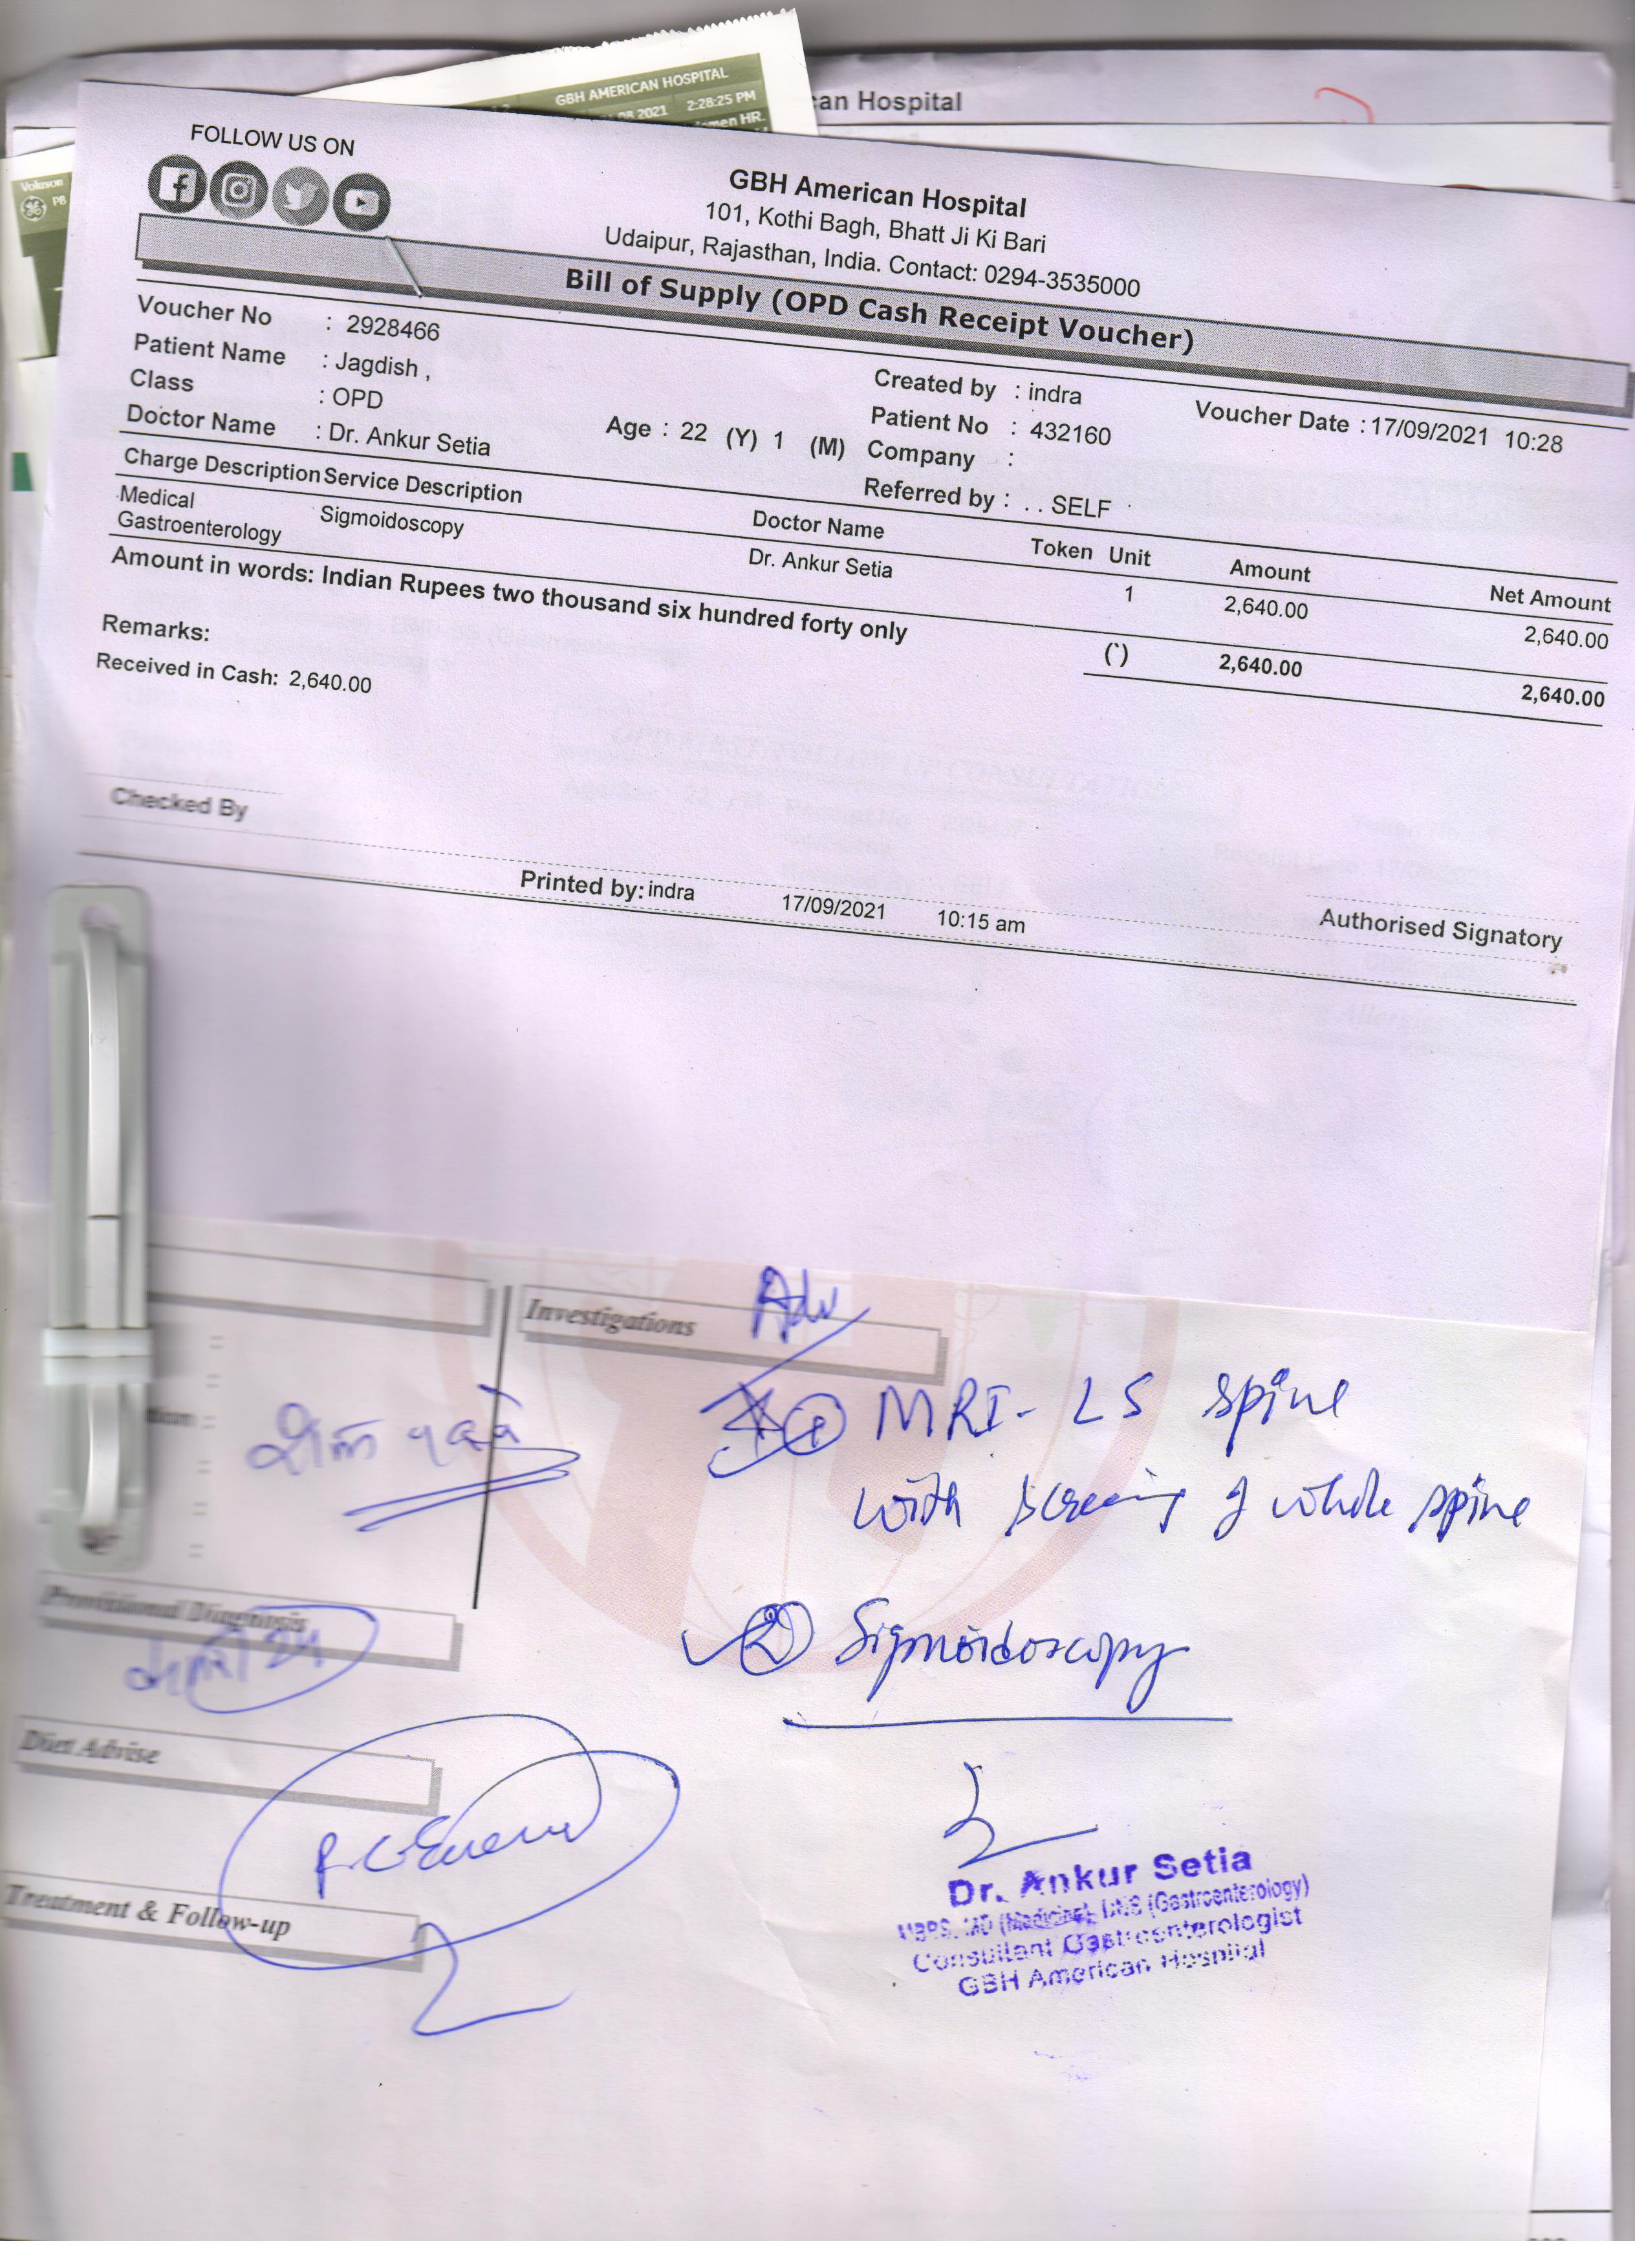 GBH AMERICAN HOSPITAL
2:28:25 PM
can Hospital
FOLLOW US ON
GBH American Hospital
101, Kothi Bagh, Bhatt Ji Ki Bari
Udaipur, Rajasthan, India. Contact: 0294-3535000
Bill of Supply (OPD Cash Receipt Voucher)
Voucher No : 2928466 Created by : indra Voucher Date : 17/09/2021 10:28
Patient Name : Jagdish , Patient No : 432160
Class : OPD Age : 22 (Y) 1 (M) Company :
Doctor Name : Dr. Ankur Setia Referred by : . . SELF
Charge Description Service Description Doctor Name Token Unit Amount Net Amount
Medical Sigmoidoscopy Dr. Ankur Setia 1 2,640.00 2,640.00
Gastroenterology
Amount in words: Indian Rupees two thousand six hundred forty only (`) 2,640.00 2,640.00
Remarks:
Received in Cash: 2,640.00
Checked By
Authorised Signatory
Printed by: indra 17/09/2021 10:15 am
Investigations
Adv
① MRI - LS spine
with screening of whole spine
② Sigmoidoscopy
Provisional Diagnosis
Diet Advise
Treatment & Follow-up
Dr. Ankur Setia
MBBS, MD (Medicine), DNB (Gastroenterology)
Consultant Gastroenterologist
GBH American Hospital